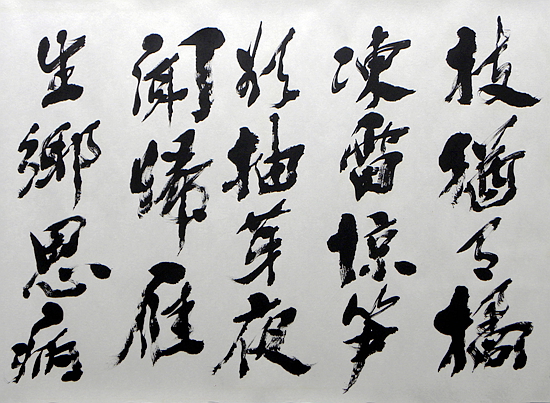 枝猶有橘
凍雷惊笋
欲抽芽夜
聞歸雁
生鄉思病